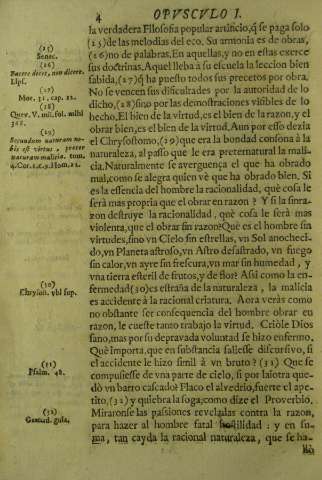 4 OPVSCVLO I.
la verdadera Filosofia popular artificio, q̃ se paga solo
(25)de las melodias del eco. Su armonia es de obras,
(26)no de palabras. En aquellas, y no en estas exerce
sus doctrinas. Aquel lleba à su escuela la leccion bien
sabida,(27)q̃ ha puesto todos sus precetos por obra.
No se vencen sus dificultades por la autoridad de lo
dicho,(28)sino por las demostraciones visibles de lo
hecho. El bien de la virtud, es el bien de la razon, y el
obrar bien, es el bien de la virtud. Aun por esso dezia
el Chrysostomo,(29)que era la bondad consona à la
naturaleza, al passo que le era preternatural la mali-
cia. Naturalmente se averguença el que ha obrado
mal, como se alegra quien vè que ha obrado bien. Si
es la essencia del hombre la racionalidad, què cosa le
serà mas propria que el obrar en razon? Y si la sinra-
zon destruye la racionalidad, què cosa le serà mas
violenta, que el obrar sin razon? Què es el hombre sin
virtudes, sino vn Cielo sin estrellas, vn Sol anocheci-
do, vn Planeta astroso, vn Astro desastrado, vn fuego
sin calor, vn ayre sin frescura, vn mar sin humedad, y
vna tierra esteril de frutos, y de flor? Asi como la en-
fermedad(30)es estraña de la naturaleza, la malicia
es accidente à la racional criatura. Aora veràs como
no obstante ser consequencia del hombre obrar en
razon, le cueste tanto trabajo la virtud. Criòle Dios
sano, mas por su depravada voluntad se hizo enfermo.
Què importa, que en substancia saliesse discursivo, si
el accidente le hizo simil à vn bruto?(31) Que se
compusiesse de vna parte de cielo, si por la otra que-
dò vn barro cascado? Flaco el alvedrio, fuerte el ape-
tito,(32) y quiebra la soga, como dize el Proverbio.
Miraronse las passiones reveladas contra la razon,
para hazer al hombre fatal hostilidad: y en su-
ma, tan cayda la racional naturaleza, que se ha-
llò
(25)
Senec.
(26)
Facere docet, non dicere.
Lips.
(27)
Mor. 31. cap. 12.
(28)
Quer. V. mil. fol. mihi
328.
(29)
Secundum naturam no-
bis est virtus, præter
naturam malicia. tom.
4. Cor. 12. c. 3. Hom. 22.
(30)
Chrysost. vbi sup.
(31)
Psalm. 48.
(32)